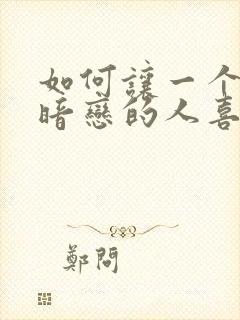 如何讓一个
暗戀的人喜
鄭問